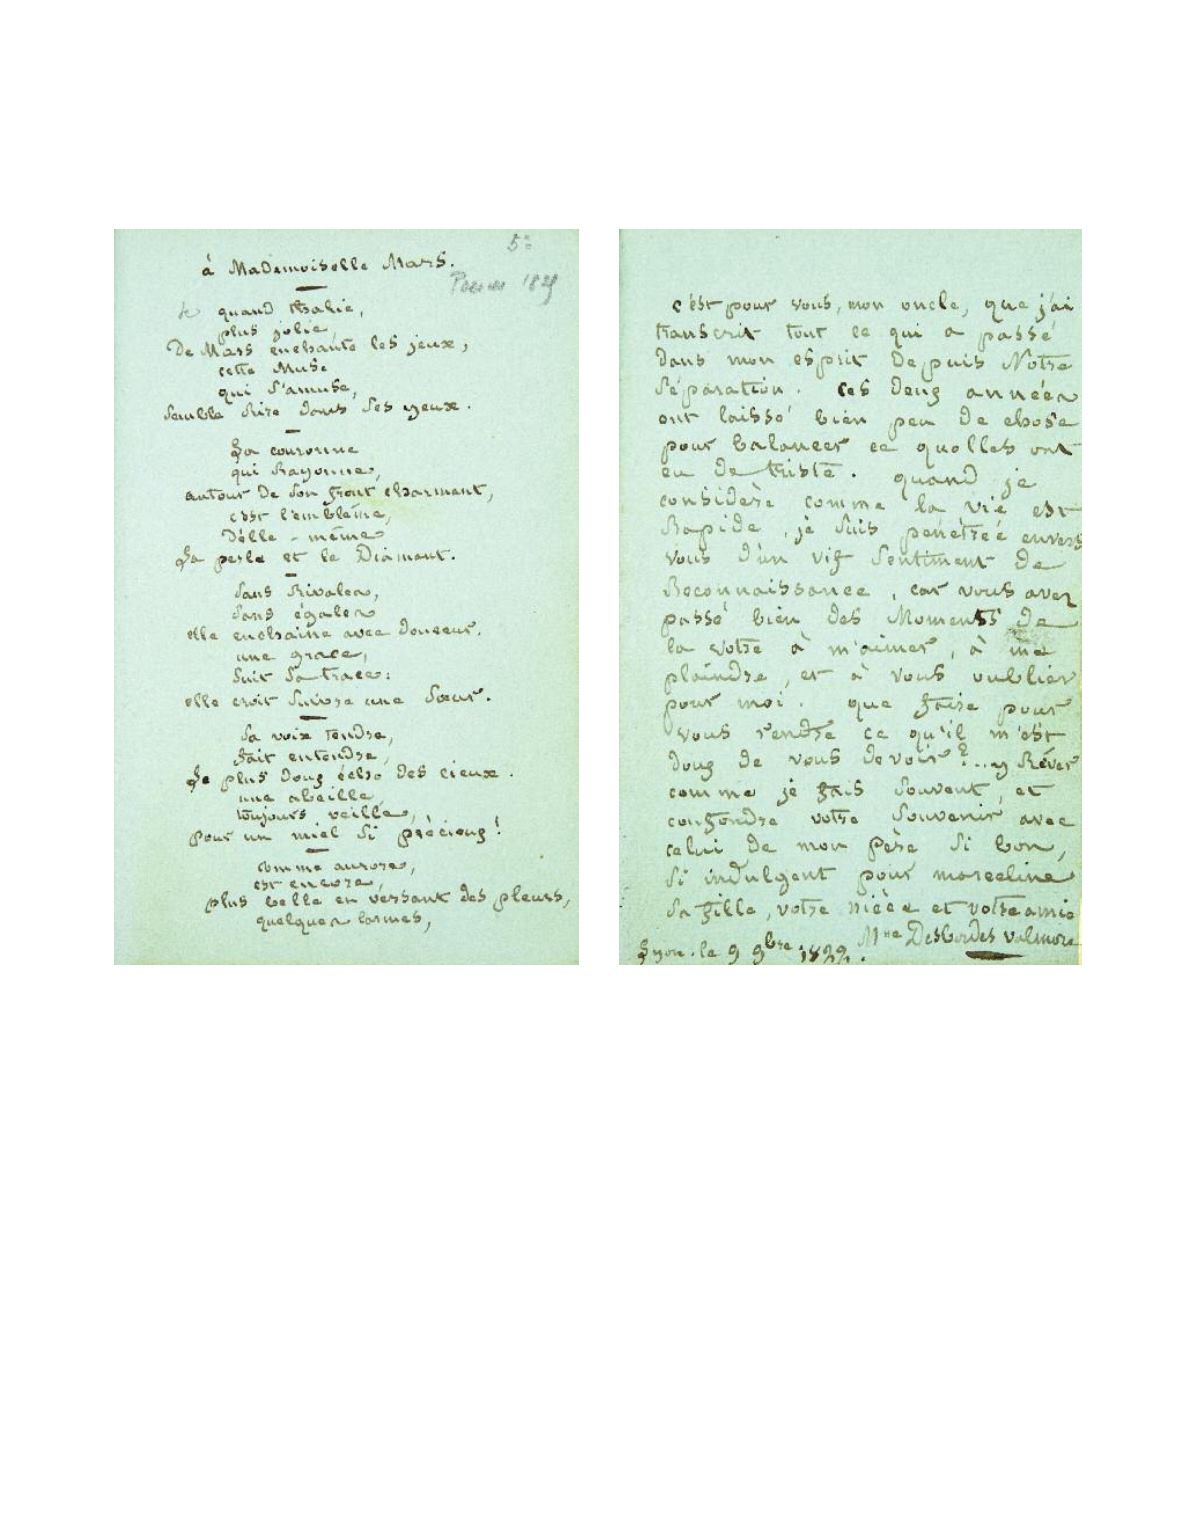 5º
à Mademoiselle Mars.
Poésies 18
quand thalie,
plus jolie,
De Mars enchante les jeux,
cette Muse
qui s'amuse,
Semble Rire dans Ses yeux.
La couronne
qui Rayonne,
autour De Son front charmant,
c'est l'emblême,
D'elle-même
La perle et le Diamant.
Sans Rivales,
Sans égales
elle enchaine avec douceur.
une grace,
Suit Sa trace:
elle croit Suivre une Sœur.
Sa voix tendre,
fait entendre,
Le plus doux écho des cieux.
une abeille,
toujours veille,
pour un miel Si précieux!
comme aurore,
est encore,
plus belle en versant des pleurs,
quelques larmes,
c'est pour vous, mon oncle, que j'ai
transcrit tout ce qui a passé
dans mon esprit Depuis Notre
Séparation. Ces Deux années
ont laissé bien peu De chose
pour balancer ce qu'elles ont
eu De triste. quand je
considère comme la vie est
Rapide, je Suis pénétrée envers
vous d'un vif Sentiment De
Reconnaissance, car vous avez
passé bien des Moments De
la votre à m'aimer, à me
plaindre, et à vous oublier
pour moi. que faire pour
vous rendre ce qu'il m'est
doux de vous devoir?...y Réver
comme je fais Souvent, et
confondre votre Souvenir avec
celui De mon Père Si bon,
Si indulgent pour marceline
Sa fille, votre nièce et votre amie
Mme Desbordes valmore
Lyon. le 9 9bre. 1822.